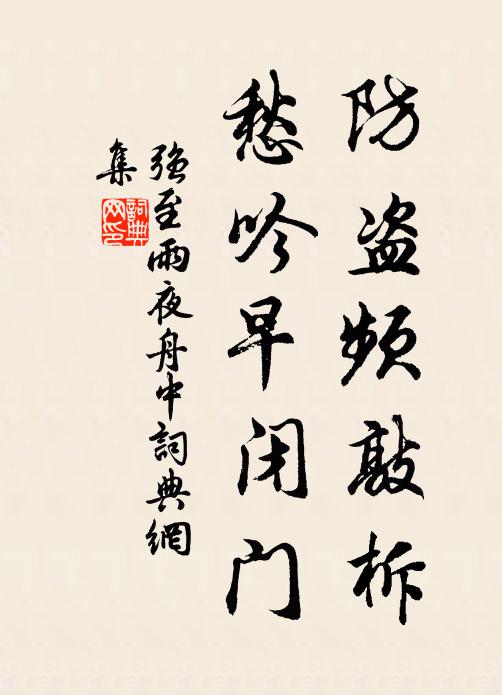 防盗频敲柝
愁吟早闭门
强至雨夜舟中詞典網
集
詞典
网印